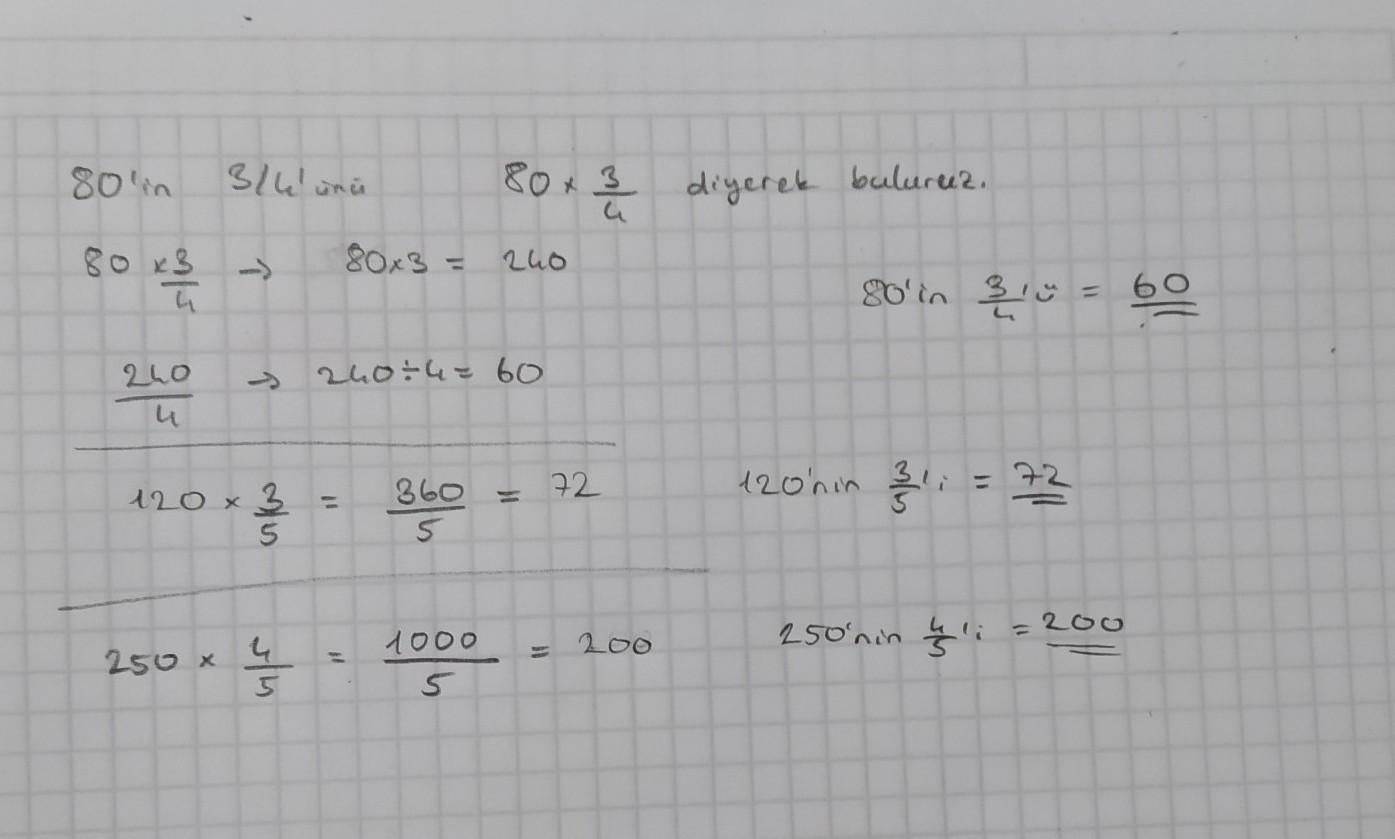 80'in 3/4'ünü 80 x 3/4 diyerek buluruz.
80 x 3/4 → 80x3 = 240
80'in 3/4'ü = 60
240/4 → 240÷4= 60
120 x 3/5 = 360/5 = 72
120'nin 3/5'i = 72
250 x 4/5 = 1000/5 = 200
250'nin 4/5'i = 200